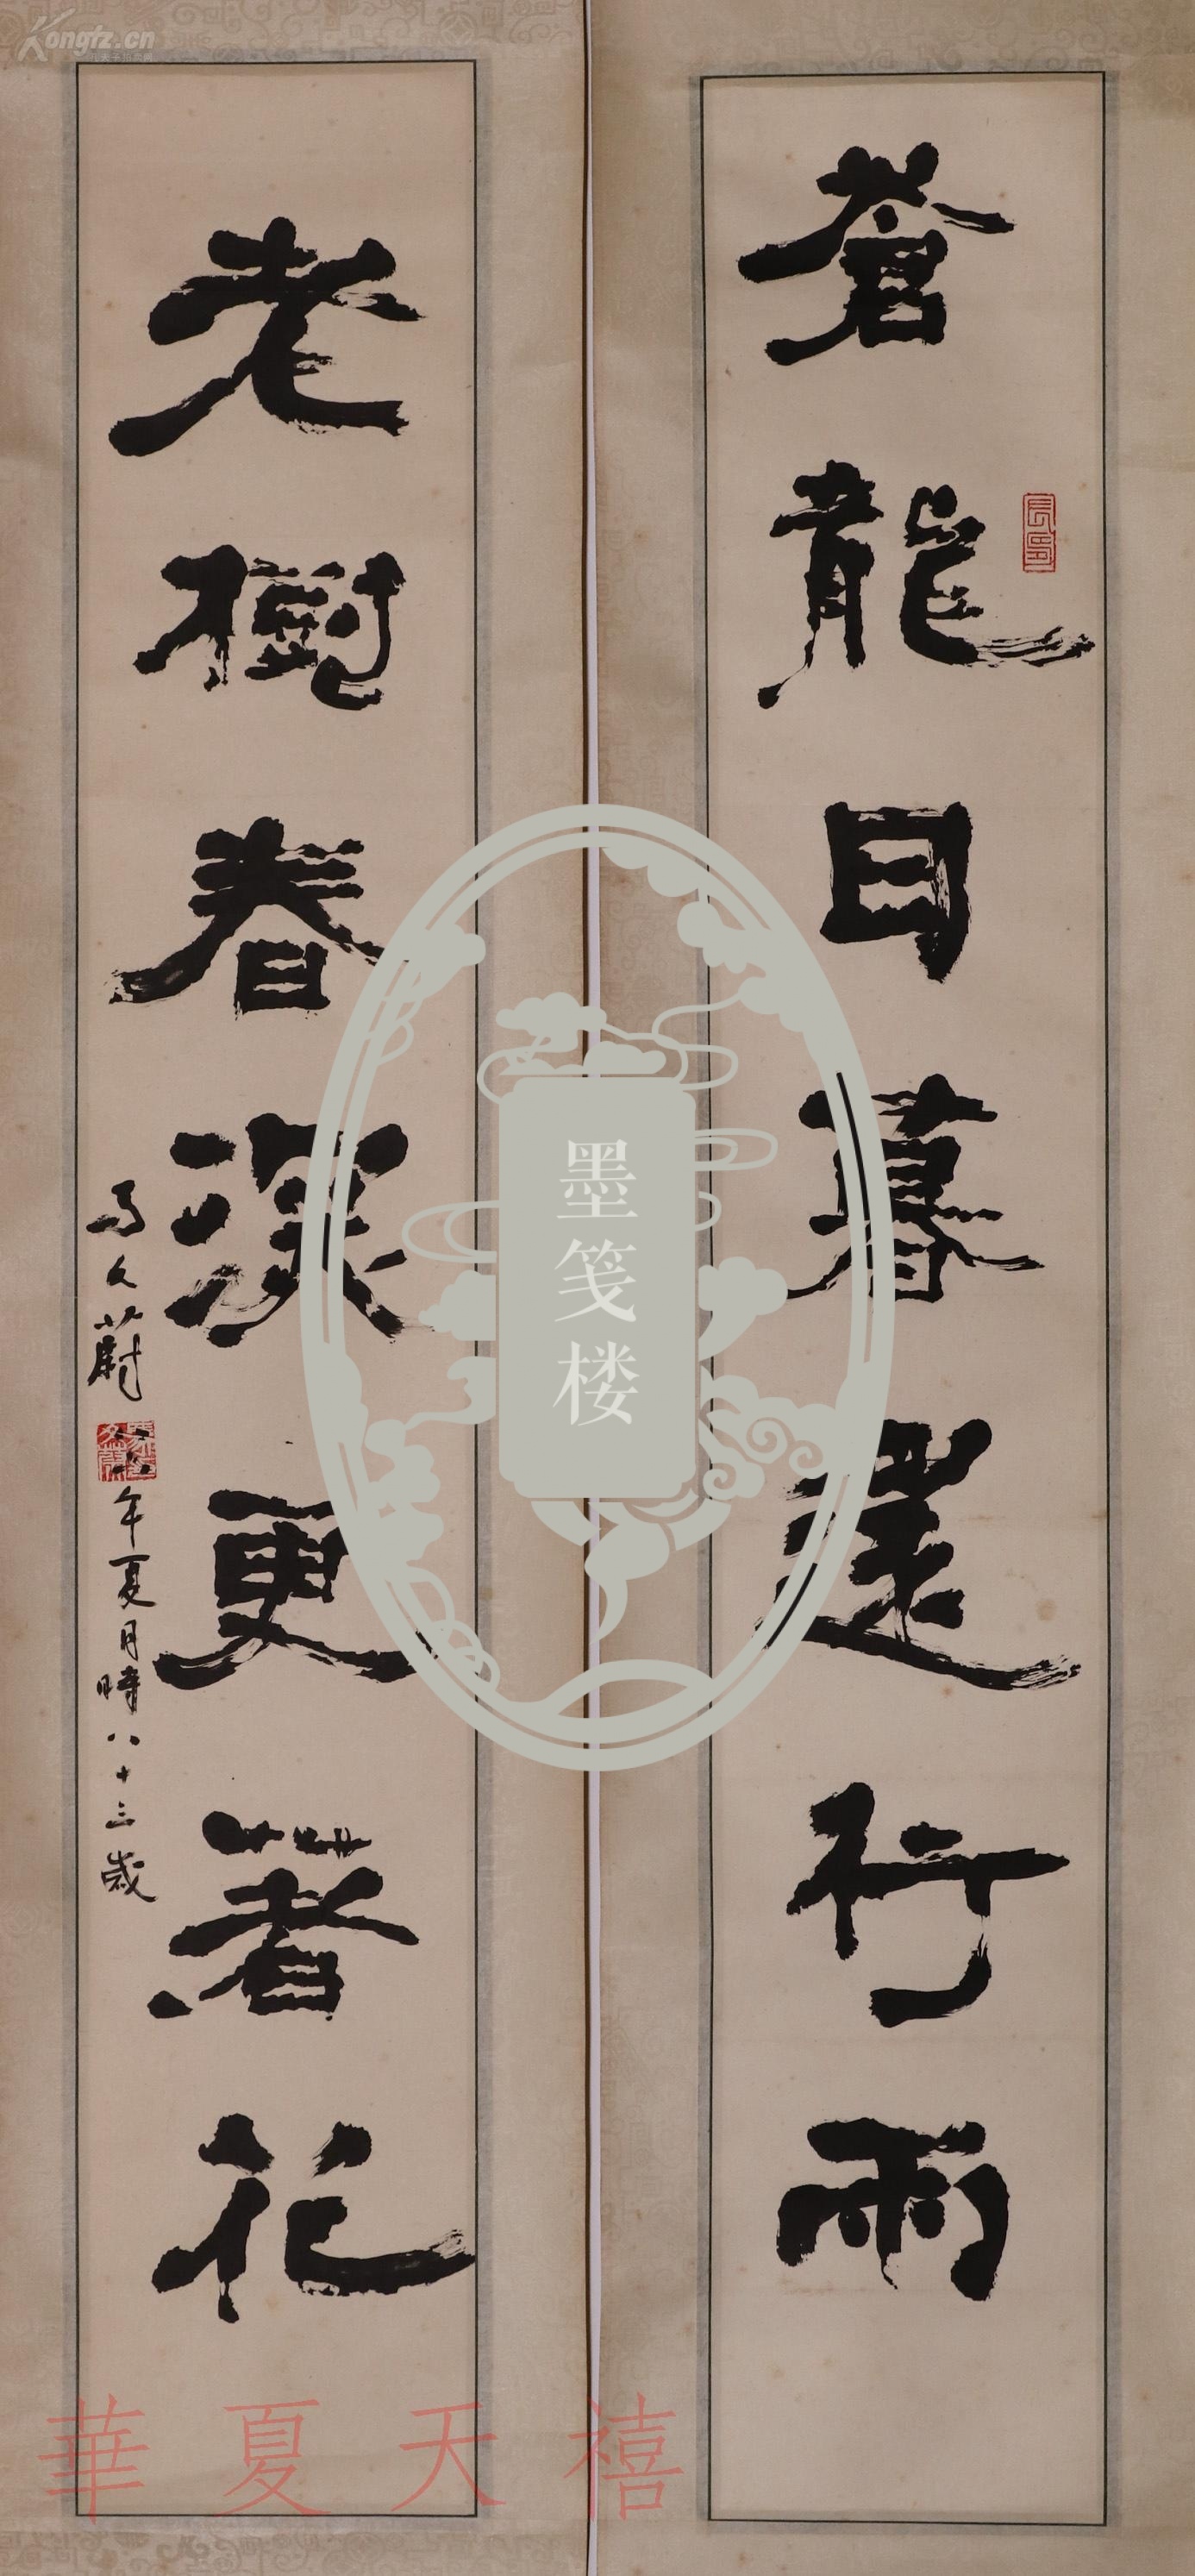 蒼龍日暮還行雨
老樹春深更著花
年夏月時八十三歲
墨笺楼
華夏天禧
Kongfz.cn